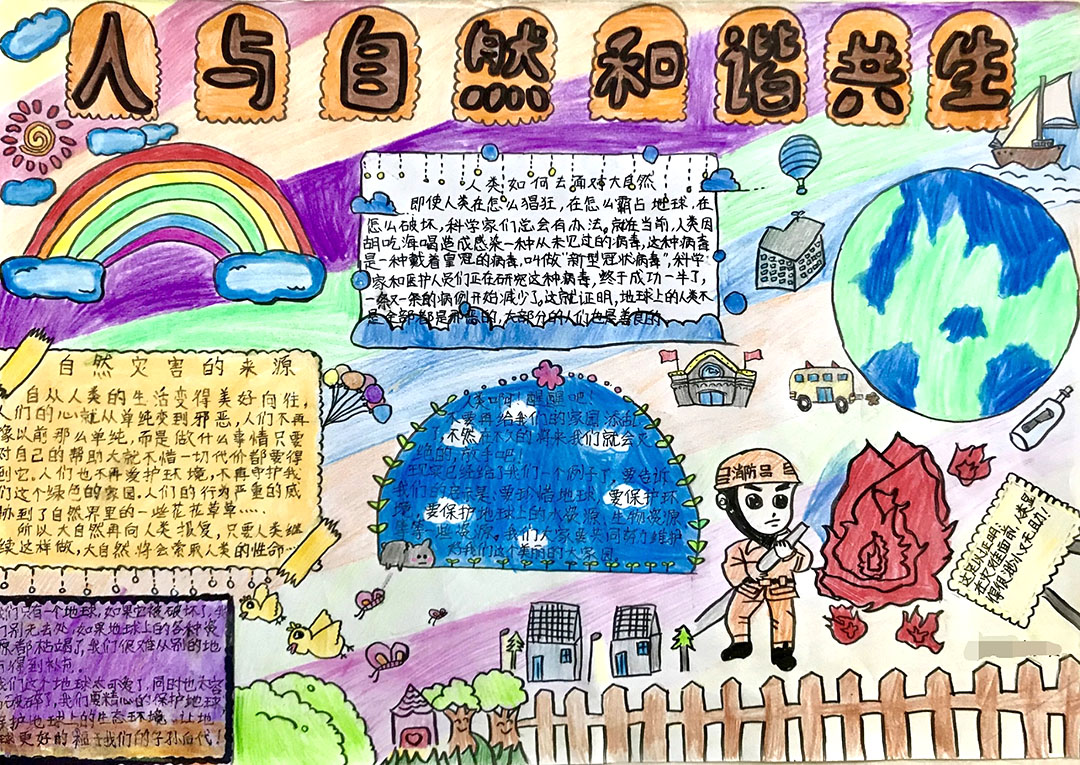 人与自然和谐共生
人类如何去面对大自然
即使人类在怎么猖狂，在怎么霸占地球，在
怎么破坏，科学家们总会有办法。就在当前，人类因
胡吃海喝造成感染一种从未见过的病毒，这种病毒
是一种戴着皇冠的病毒，叫做“新型冠状病毒”，科学
家和医护人员们正在研究这种病毒，终于成功一半了，
一条又一条的病例开始减少了。这就证明，地球上的人类不
是全部都是邪恶的，大部分的人们也是善良的
自然灾害的来源
自从人类的生活变得美好向往，
人们的心就从单纯变到邪恶，人们不再
像以前那么单纯，而是做什么事情只要
对自己的帮助大就不惜一切代价都要得
到它。人们也不再爱护环境，不再守护我
们这个绿色的家园。人们的行为严重的威
胁到了自然界里的一些花花草草……
所以大自然再向人类报复，只要人类继
续这样做，大自然将会索取人类的性命…
人类啊！醒醒吧！
不要再给我们的家园添乱
了，不然在不久的将来我们就会灭
绝的，放手吧！
现实已经给了我们一个例子了，要告诉
我们的启示是：要珍惜地球，要保护环
境，要保护地球上的水资源、生物资源
等一些资源。我们大家要共同努力维护
好我们这个美丽的大家园。
消防员
这足以证明，
在灾难面前，人类显
得很渺小又无助！
我们只有一个地球，如果它被破坏了，我
们别无去处，如果地球上的各种资
源都枯竭了，我们很难从别的地
方得到补充。
我们这个地球太可爱了，同时也太容
易破碎了，我们要精心的保护地球
保护地球上的生态环境。让地
球更好的造于我们的子孙后代！